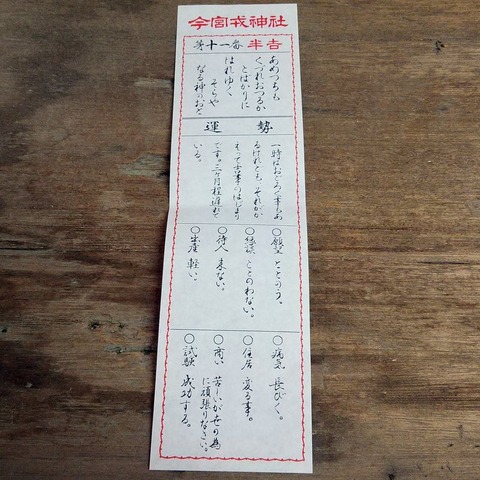 今宮戎神社
第十一番 半吉
あめつちも
くづれおつるか
とばかりに
はれゆく
そらや
なる神のおと
運勢
一時はおどろく事もあ
るけれども それがか
えって吉事のはじまり
です。二ヶ月程遅れて
いる。
○願望 ととのう。
○縁談 ととのわない。
○待人 来ない。
○出産 軽い。
○病気 長びく。
○住居 変る事。
○商い 苦しいが世の為
に頑張りなさい。
○試験 成功する。